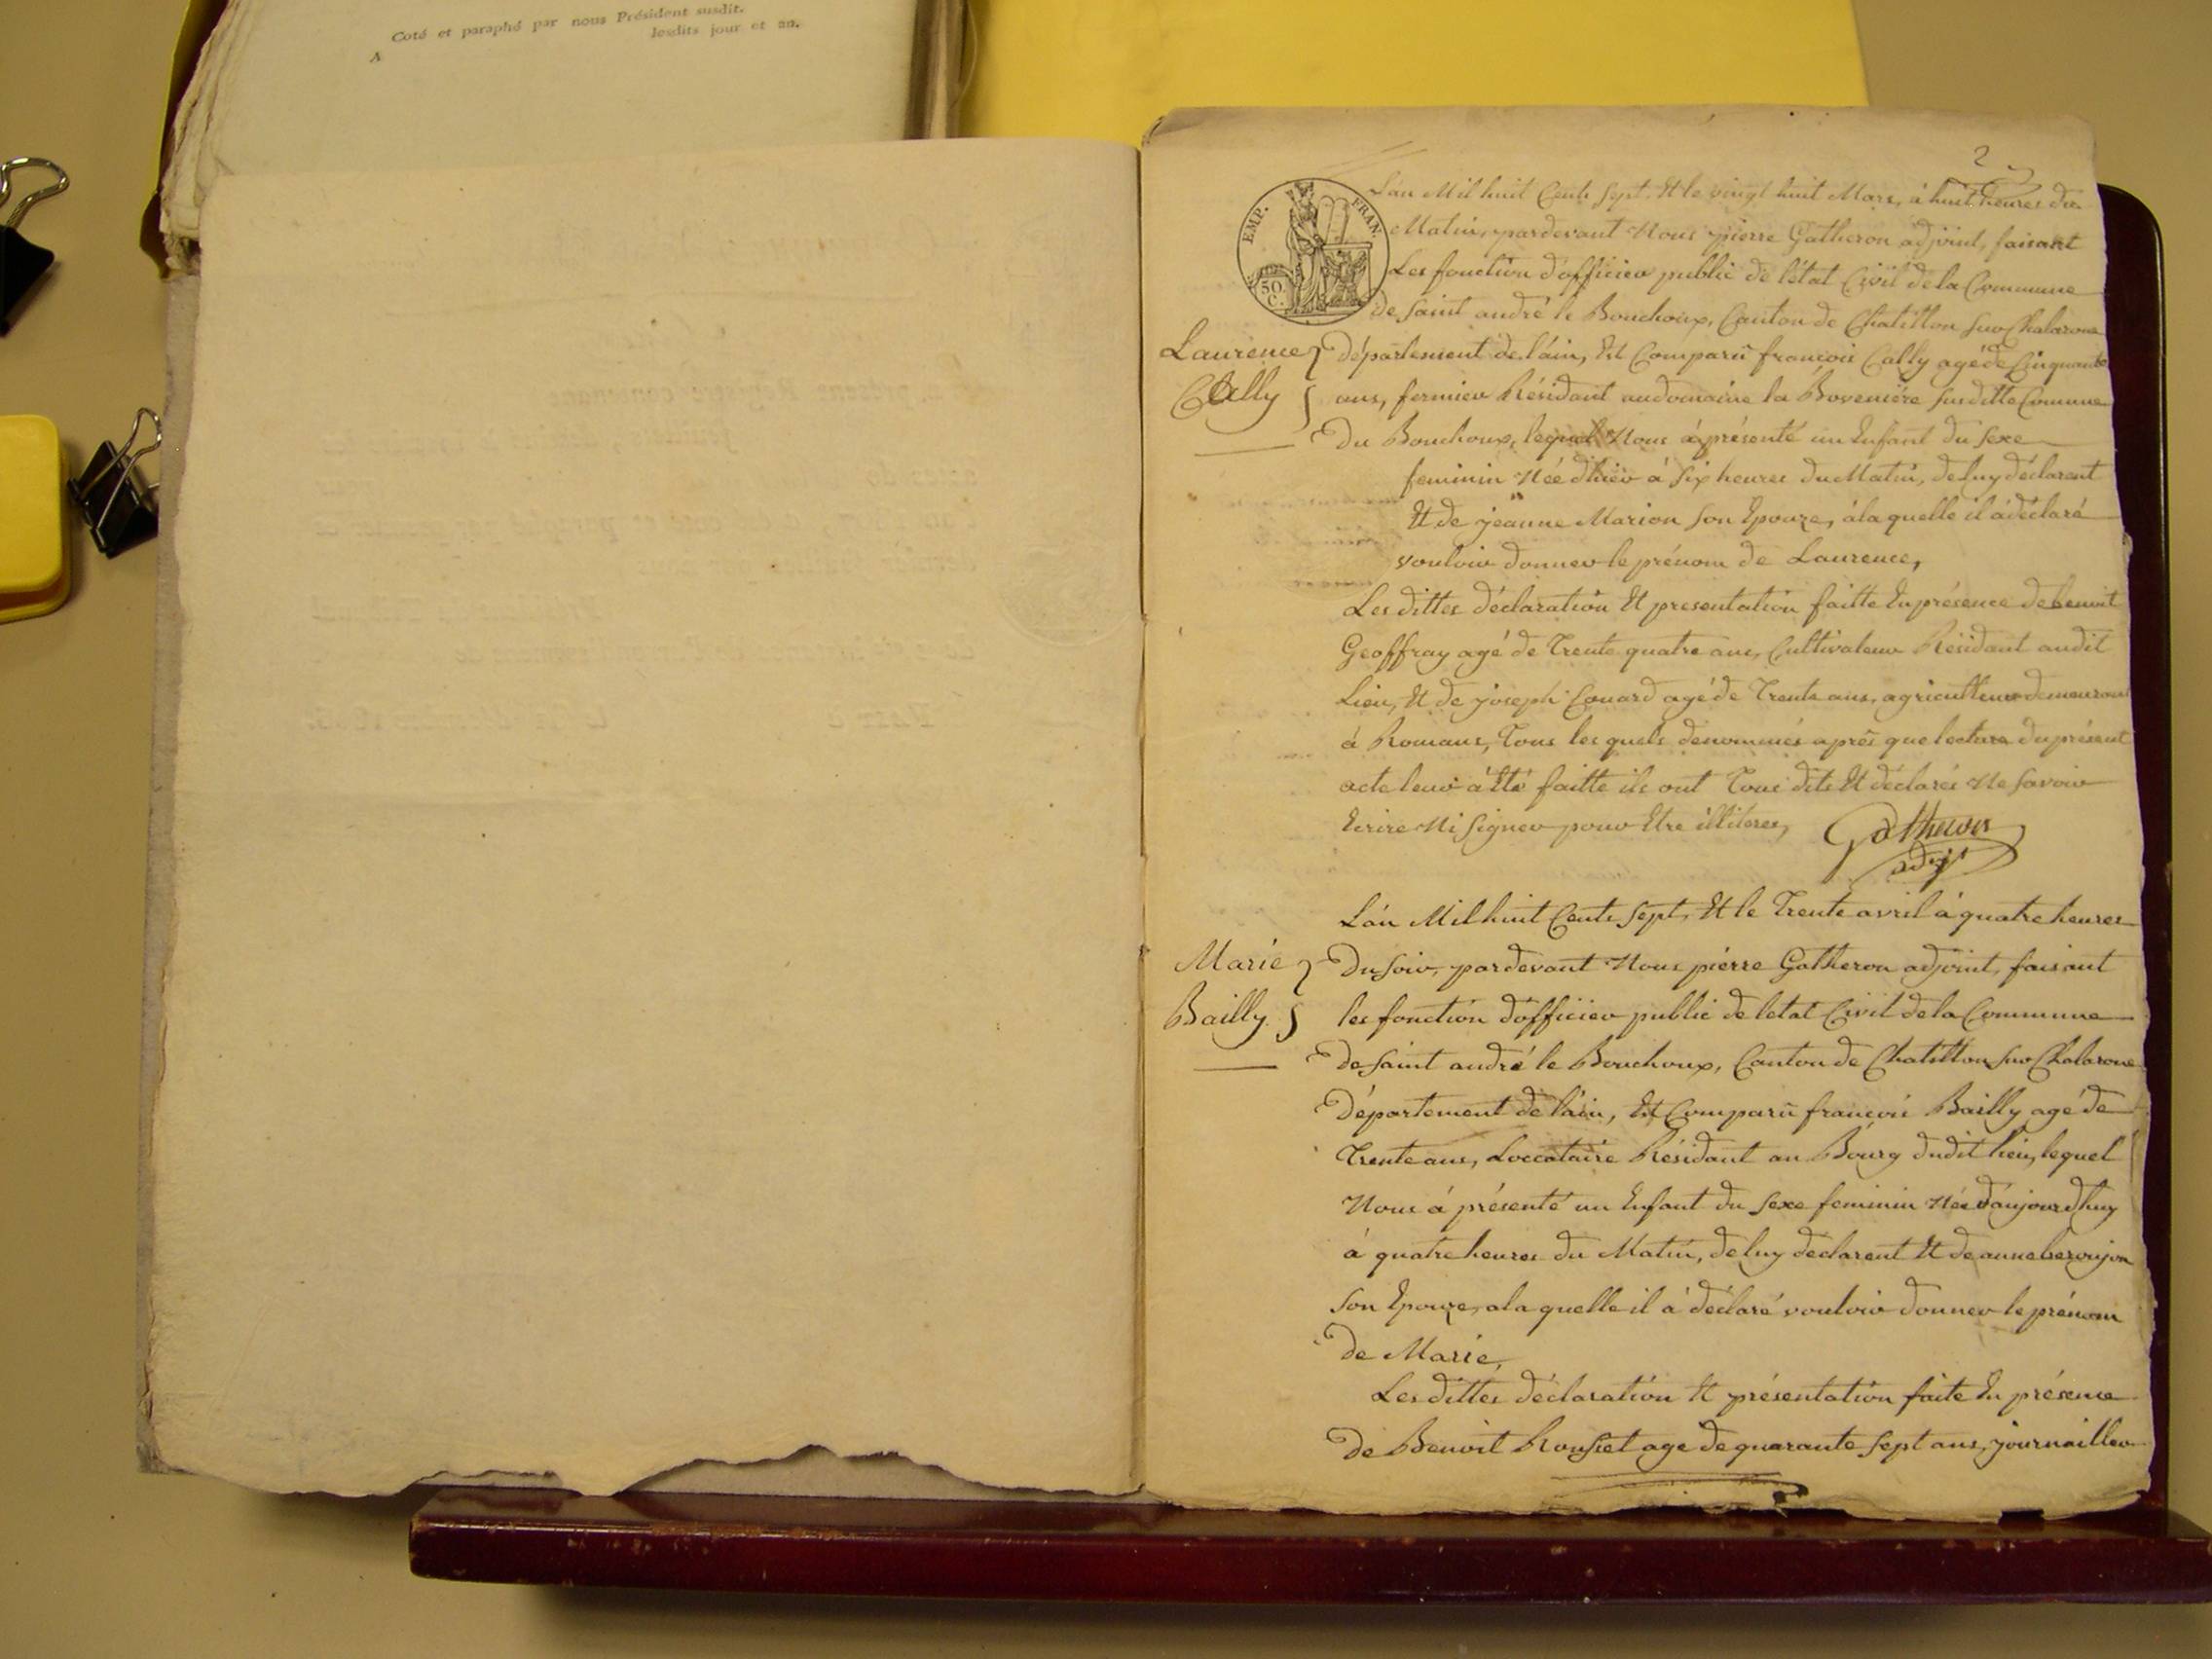 Coté et paraphé par nous Président susdit.
A
lesdits jour et an.
2
EMP. FRAN.
50.
C.
L'an Mil huit Cents Sept, Et le vingt huit Mars, à huit heures du
Matin, pardevant Nous pierre Gatheron adjoint, faisant
Les fonction d'officier public de l'état Civil de la Commune
de Saint andré le Bouchoux, Canton de Chatillon Sur Chalarone
Laurence
Cally
Département de l'ain, Est Comparû francois Cally agé de Cinquante
ans, fermier Résidant audomaine la Boveniére Susditte Commune
Du Bouchoux, lequel Nous à présenté un Enfant du Sexe
feminin Née d'hier à Six heures du Matin, de luy déclarent
Et de jeanne Marion Son Epouze, àla quelle il à déclaré
vouloir donner le prénom de Laurence,
Les dittes déclaration Et presentation faitte En présence de benoit
Geoffray agé de Trente quatre ans, Cultivateur Résidant audit
Lieu, Et de joseph Couard agé de Trente ans, agriculteur demeurant
à Romans, Tous les quels denommés aprés que lecture du présent
acte leur à Eté faitte ils ont Tous dits Et déclarés Ne Savoir
Ecrire Ni Signer pour Etre illiteres,
Gatheron
adjt
L'an Mil huit Cents Sept, Et le Trente avril à quatre heures
Marie
Bailly
Du Soir, pardevant Nous piérre Gatheron adjoint, faisant
les fonction d'officier public de letat Civil de la Commune
de Saint andré le Bouchoux, Canton de Chatillon Sur Chalarone
Département de l'ain, Est Comparû francois Bailly agé de
Trente ans, Loccataire Résidant au Bourg dudit lieu, lequel
Nous à présenté un Enfant du Sexe feminin Née d'aujourdhuy
à quatre heures du Matin, de luy declarent Et de anne
Son Epouze, ala quelle il à déclaré vouloir donner le prénom
de Marie,
Les dittes déclaration Et présentation faite En présence
de Benoit Rousset age de quarante Sept ans, journaillier